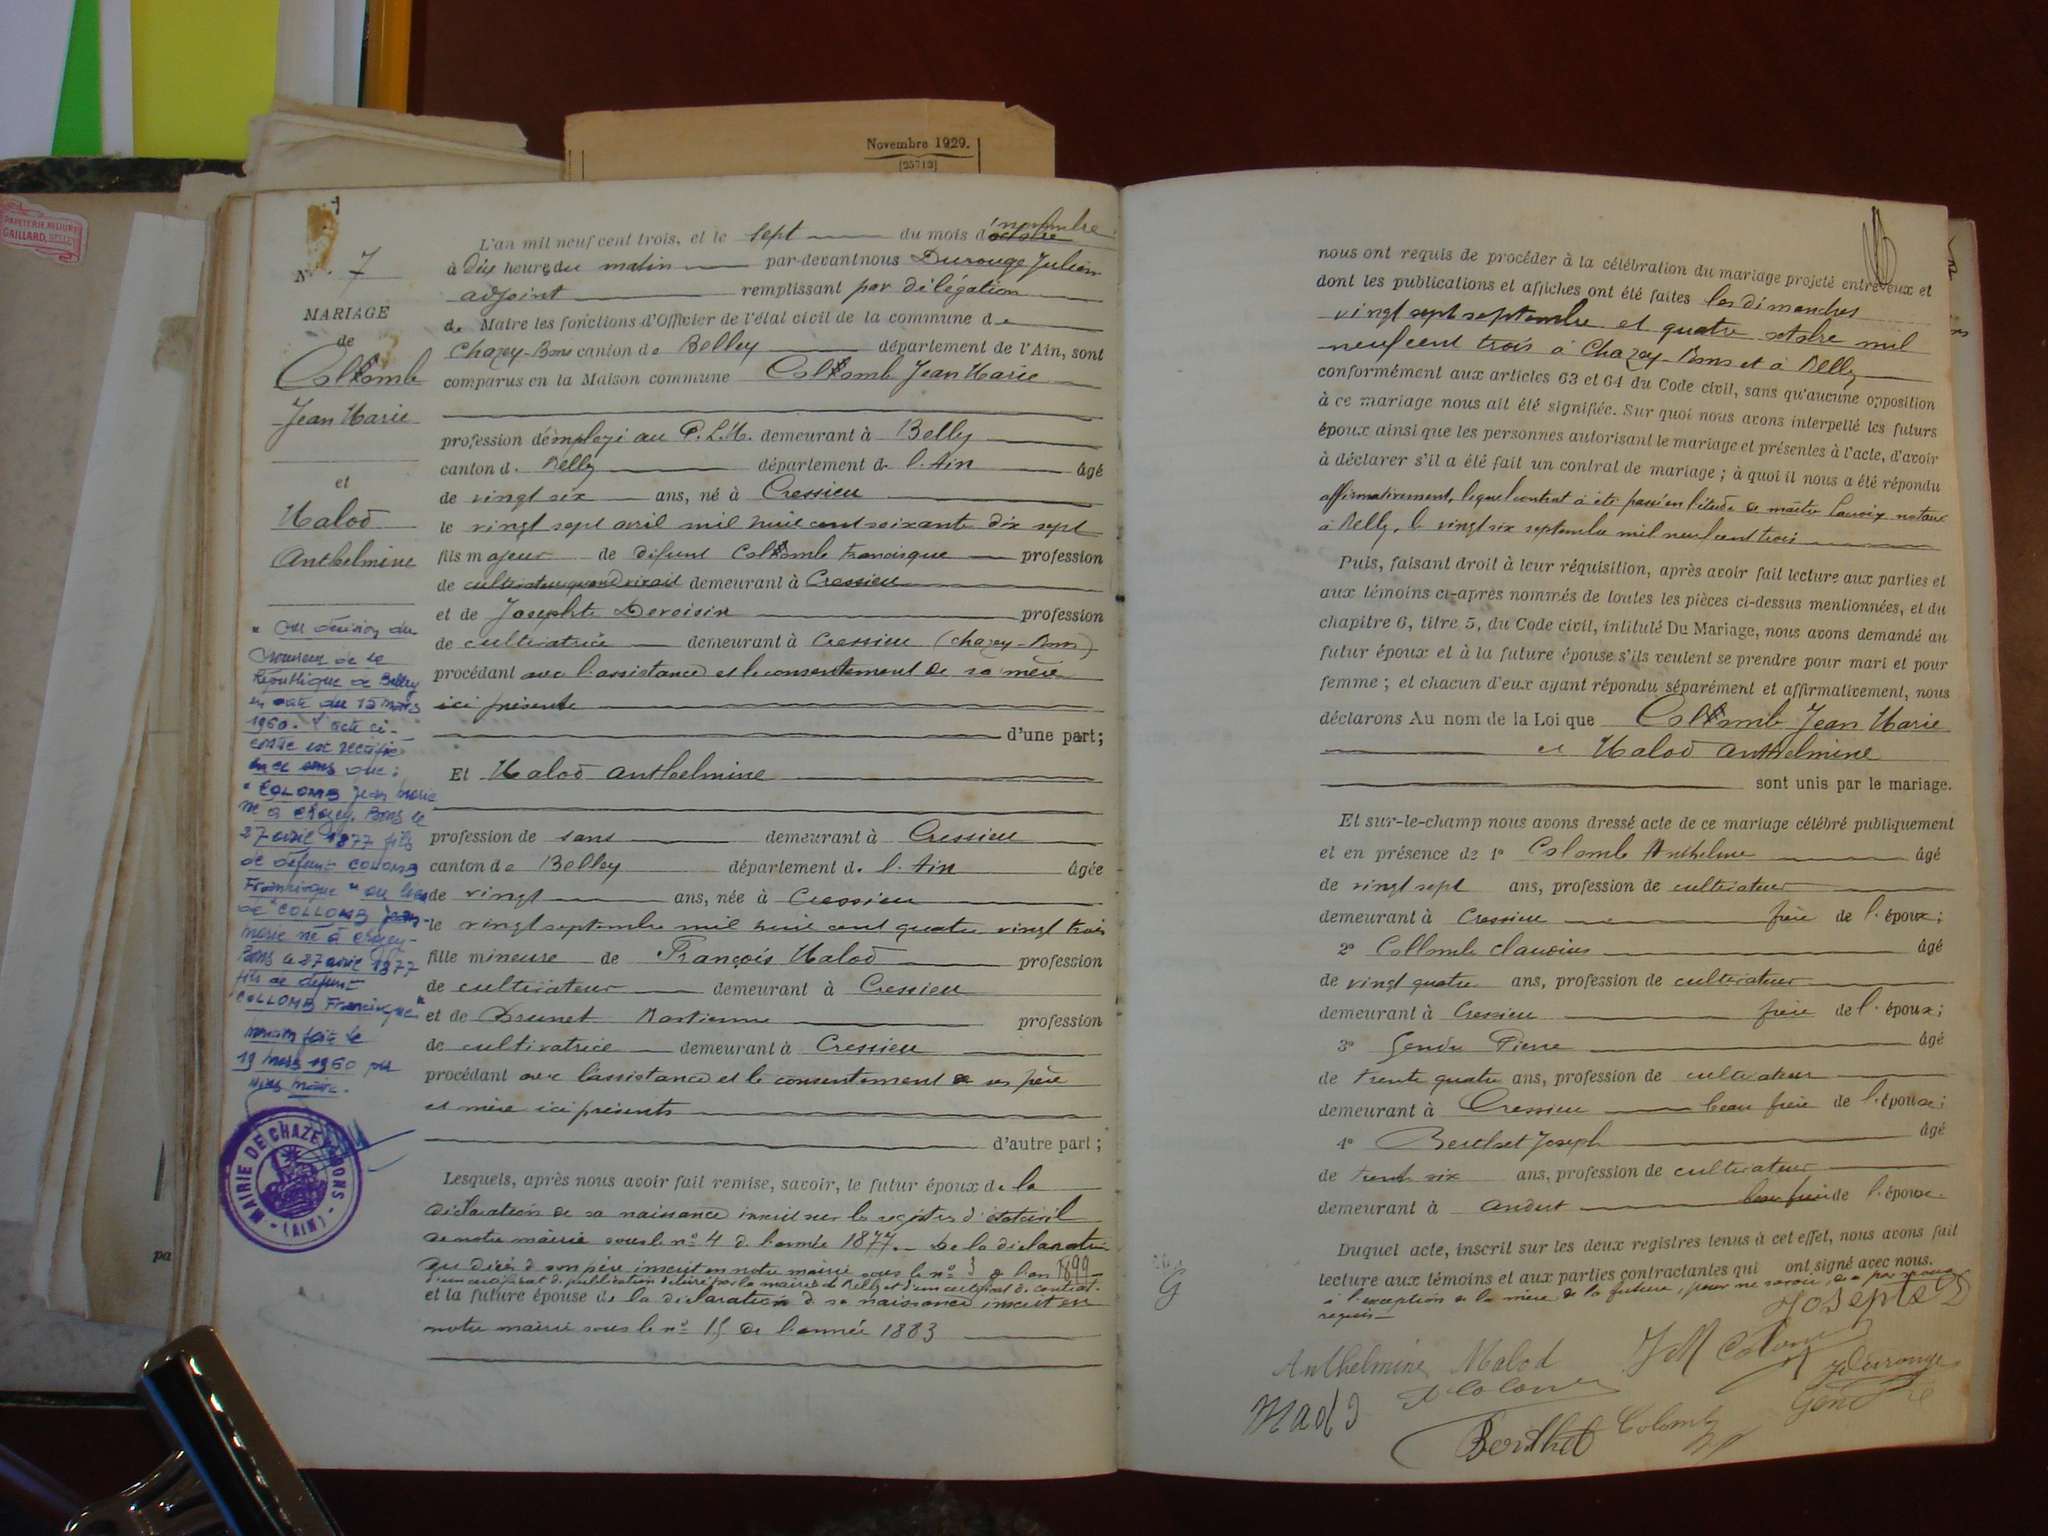 PAPETERIE RELIURE
GAILLARD, BELLEY
Novembre 1929.
[25713]
N° 7
MARIAGE
de
Collomb
Jean Marie
et
Malod
Anthelmine
" Par décision du
Procureur de la
République de Belley
en date du 12 mars
1960. l'acte ci-
contre est rectifié
en ce sens que :
" COLOMB Jean Marie
né à Chazey-Bons le
27 avril 1877 fils
de défunt COLOMB
Francisque " au lieu
de " COLLOMB Jean-
Marie né à Chazey-
Bons le 27 avril 1877
fils de défunt
COLLOMB Francisque "
mention faite le
19 mars 1960 par
nous maire.
MAIRIE DE CHAZEY-BONS
(AIN)
L'an mil neuf cent trois, et le sept du mois d'octobre novembre
à dix heures du matin par-devant nous Durouge Julien
adjoint remplissant par délégation
de Maire les fonctions d'Officier de l'état civil de la commune de
Chazey-Bons canton de Belley département de l'Ain, sont
comparus en la Maison commune Collomb Jean Marie
profession d'employé au P.L.M. demeurant à Belley
canton de Belley département de l'Ain âgé
de vingt six ans, né à Cressieu
le vingt sept avril mil huit cent soixante dix sept
fils majeur de défunt Collomb Francisque profession
de cultivateur quand vivait demeurant à Cressieu
et de Josephte Devoisin profession
de cultivatrice demeurant à Cressieu (Chazey-Bons)
procédant avec l'assistance et le consentement de sa mère
ici présente
d'une part;
Et Malod Anthelmine
profession de sans demeurant à Cressieu
canton de Belley département de l'Ain âgée
de vingt ans, née à Cressieu
le vingt septembre mil huit cent quatre vingt trois
fille mineure de François Malod profession
de cultivateur demeurant à Cressieu
et de Brunet Bastienne profession
de cultivatrice demeurant à Cressieu
procédant avec l'assistance et le consentement de ses père
et mère ici présents
d'autre part;
Lesquels, après nous avoir fait remise, savoir, le futur époux de la
déclaration de sa naissance inscrit sur les registres d'état civil
de notre mairie sous le n° 4 de l'année 1877. De la déclaration
du décès de son père inscrit en notre mairie sous le n° 3 de l'an 1899
d'un certificat de publication délivré par la mairie de Belley et d'un certificat de contrat.
et la future épouse de la déclaration de sa naissance inscrit en
notre mairie sous le n° 15 de l'année 1883
nous ont requis de procéder à la célébration du mariage projeté entre eux et
dont les publications et affiches ont été faites les dimanches
vingt sept septembre et quatre octobre mil
neuf cent trois à Chazey-Bons et à Belley
conformément aux articles 63 et 64 du Code civil, sans qu'aucune opposition
à ce mariage nous ait été signifiée. Sur quoi nous avons interpellé les futurs
époux ainsi que les personnes autorisant le mariage et présentes à l'acte, d'avoir
à déclarer s'il a été fait un contrat de mariage ; à quoi il nous a été répondu
affirmativement, lequel contrat a été passé en l'étude de maître Lacroix notaire
à Belley, le vingt six septembre mil neuf cent trois
Puis, faisant droit à leur réquisition, après avoir fait lecture aux parties et
aux témoins ci-après nommés de toutes les pièces ci-dessus mentionnées, et du
chapitre 6, titre 5, du Code civil, intitulé Du Mariage, nous avons demandé au
futur époux et à la future épouse s'ils veulent se prendre pour mari et pour
femme ; et chacun d'eux ayant répondu séparément et affirmativement, nous
déclarons Au nom de la Loi que Collomb Jean Marie
et Malod Anthelmine
sont unis par le mariage.
Et sur-le-champ nous avons dressé acte de ce mariage célébré publiquement
et en présence de 1° Colomb Anthelme âgé
de vingt sept ans, profession de cultivateur
demeurant à Cressieu frère de l'époux;
2° Collomb Claudius âgé
de vingt quatre ans, profession de cultivateur
demeurant à Cressieu frère de l'époux;
3° Gendre Pierre âgé
de trente quatre ans, profession de cultivateur
demeurant à Cressieu beau frère de l'époux;
4° Berthet Joseph âgé
de trente six ans, profession de cultivateur
demeurant à Andert beau frère de l'époux
Duquel acte, inscrit sur les deux registres tenus à cet effet, nous avons fait
lecture aux témoins et aux parties contractantes qui ont signé avec nous.
à l'exception de la mère de la future, pour ne savoir, de ce par nous
requis
Josepte D
Anthelmine Malod JM Colomb
A Colomb J Durouge
Malod Gendre
Berthet Colomb